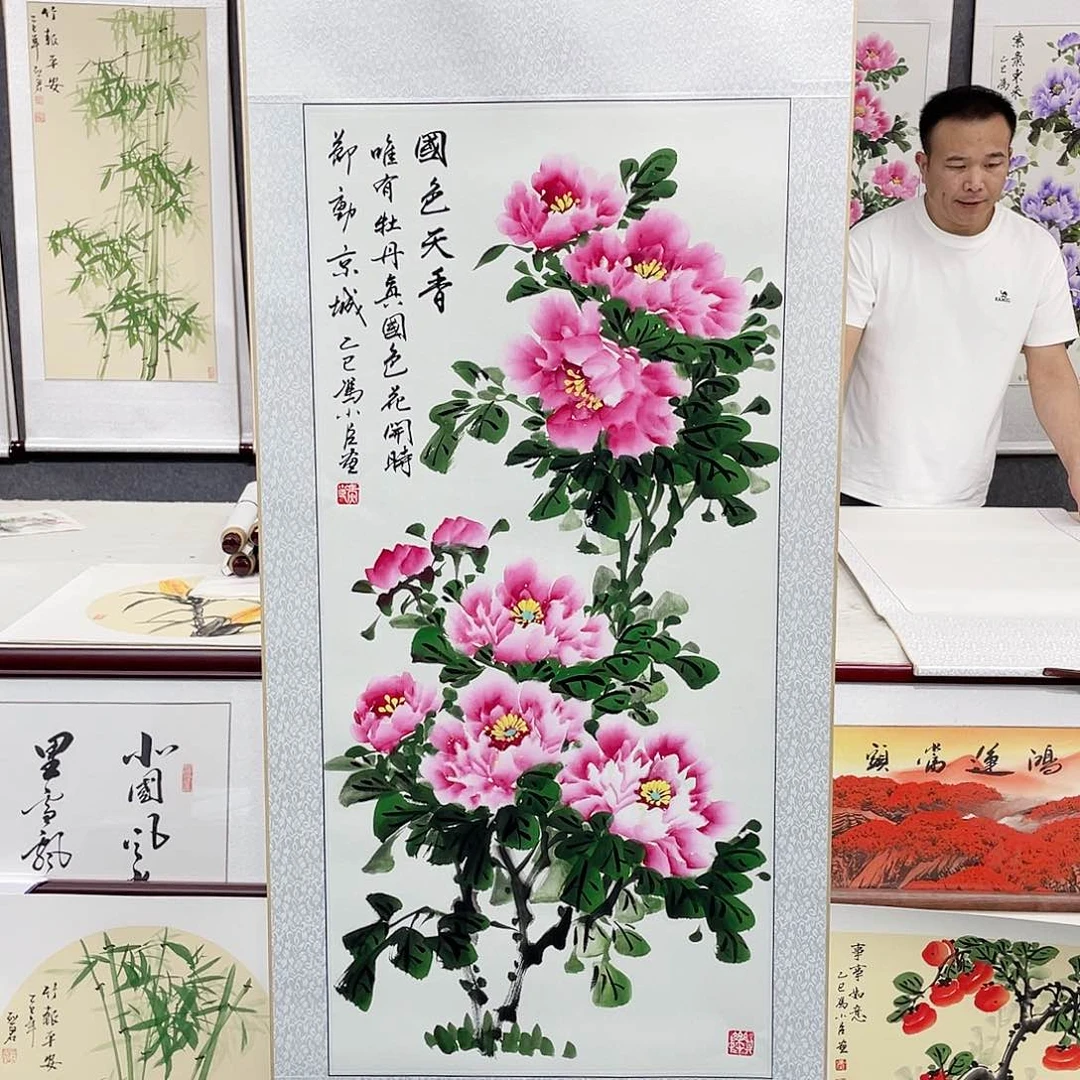 竹報平安
乙巳年
國色天香
唯有牡丹真國色花開時
節動京城 乙巳馮小畫
紫氣東來
乙巳馮
北國風
里雪飄
鴻運當頭
竹報平安
乙巳年
事事如意
乙巳馮小畫